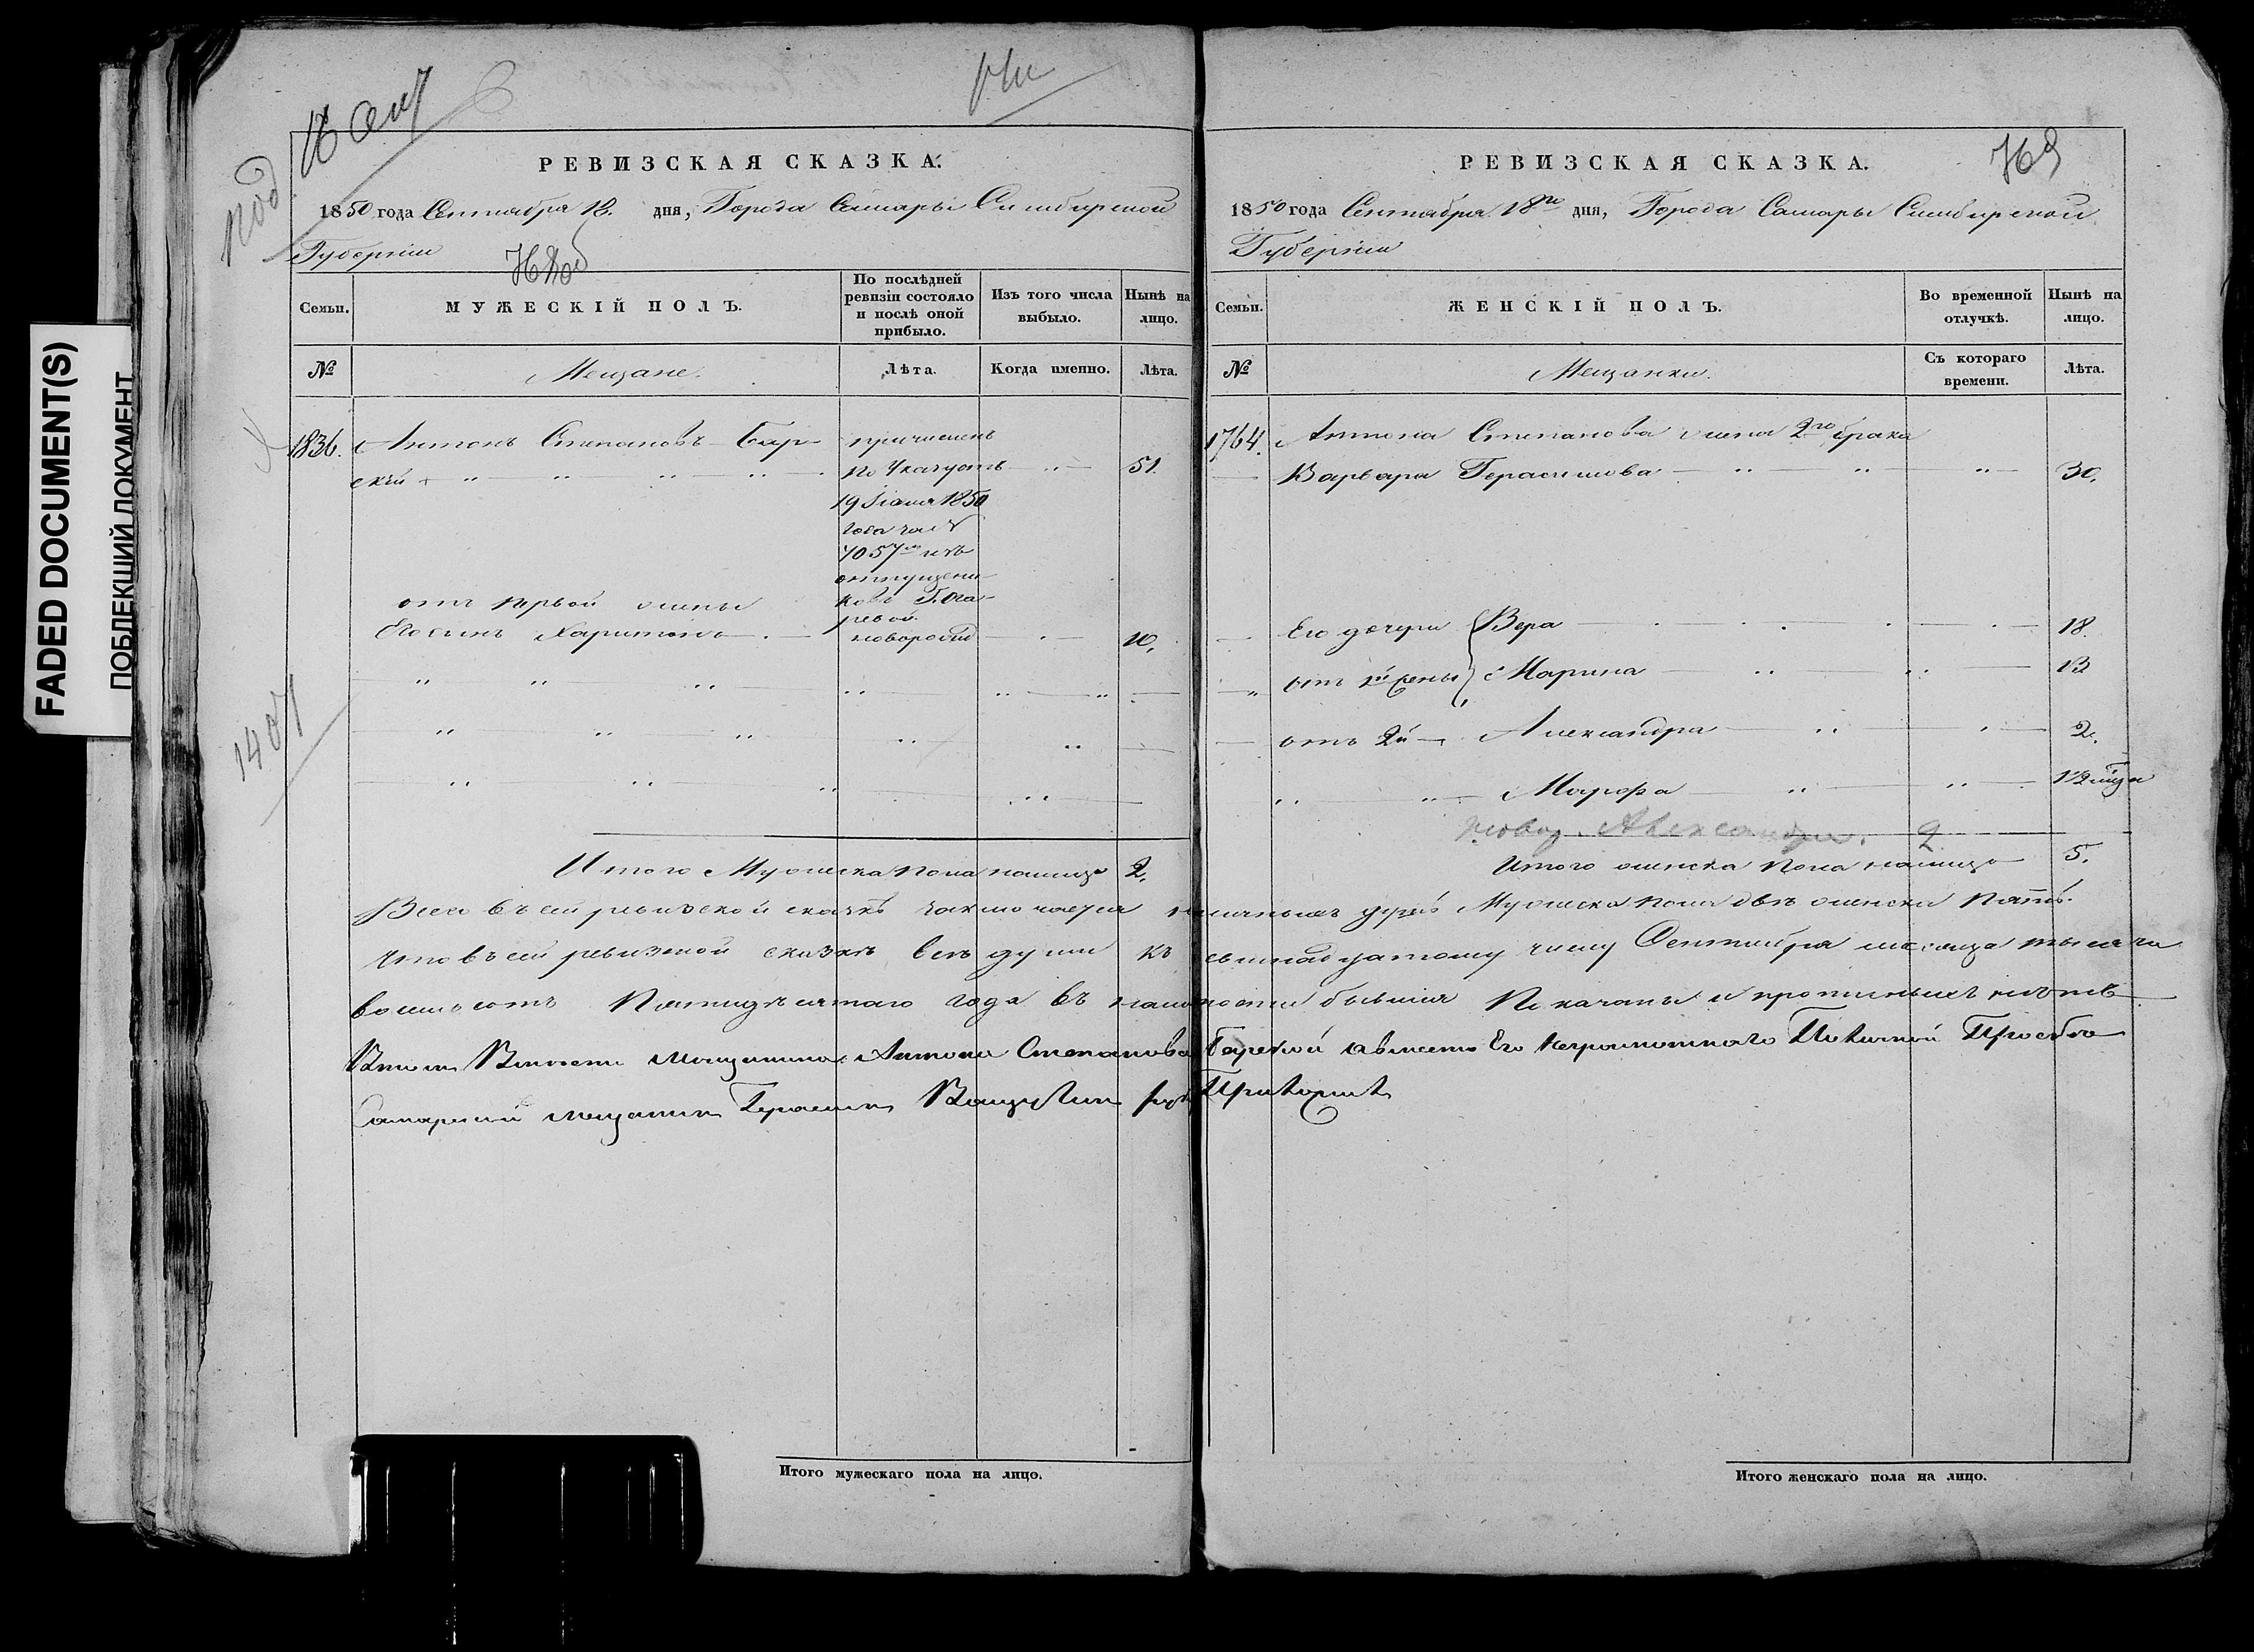 FADED DOCUMENT(S)
ПОБЛЕКШИЙ ДОКУМЕНТ
под
1407
РЕВИЗСКАЯ СКАЗКА.
1850 года Сентября 18. дня, Города Самары Симбирской
Губернии
Семьи.
МУЖЕСКІЙ ПОЛЪ.
По послѣдней ревизіи состояло и послѣ оной прибыло.
Изъ того числа выбыло.
Нынѣ на лицо.
№
Мещане.
Лѣта.
Когда именно.
Лѣта.
1836. Антонъ Степановъ Бар- причисленъ
скій по Указу отъ 51.
19 1850
года за №
7057 изъ
отпущени-
ковъ
отъ первой жены
Его сынъ Харитонъ новорожд 10.
Итого Мужеска пола налицо 2.
РЕВИЗСКАЯ СКАЗКА.
769
1850 года Сентября 18го дня, Города Самары Симбирской
Губерніи
Семьи.
ЖЕНСКІЙ ПОЛЪ.
Во временной отлучкѣ.
Нынѣ на лицо.
№
Мещанки.
Съ котораго времени.
Лѣта.
1764. Антона Степанова жена 2го брака
Варвара Герасимова 30.
Его дочери Вера 18.
отъ 1й жены Марина 13
отъ 2й Александра 2.
Марфа 1/2 года
Александра. 2
Итого женска пола налицо 5.
Всего въ сей ревизской сказкѣ заключается наличныхъ душъ Мужеска пола двѣ женска пять.
Что въ сей ревизской сказкѣ всѣ души къ восемнадцатому числу Сентября месяца тысяча
восемьсотъ Пятидесятаго года въ наличности бывшия Показаны и пропиcныхъ нетъ
Антона Степанова Барской а вместо Его неграмотнаго По личной Просьбе
Самарский мещанин Герасим руку Приложил
Итого мужескаго пола на лицо.
Итого женскаго пола на лицо.